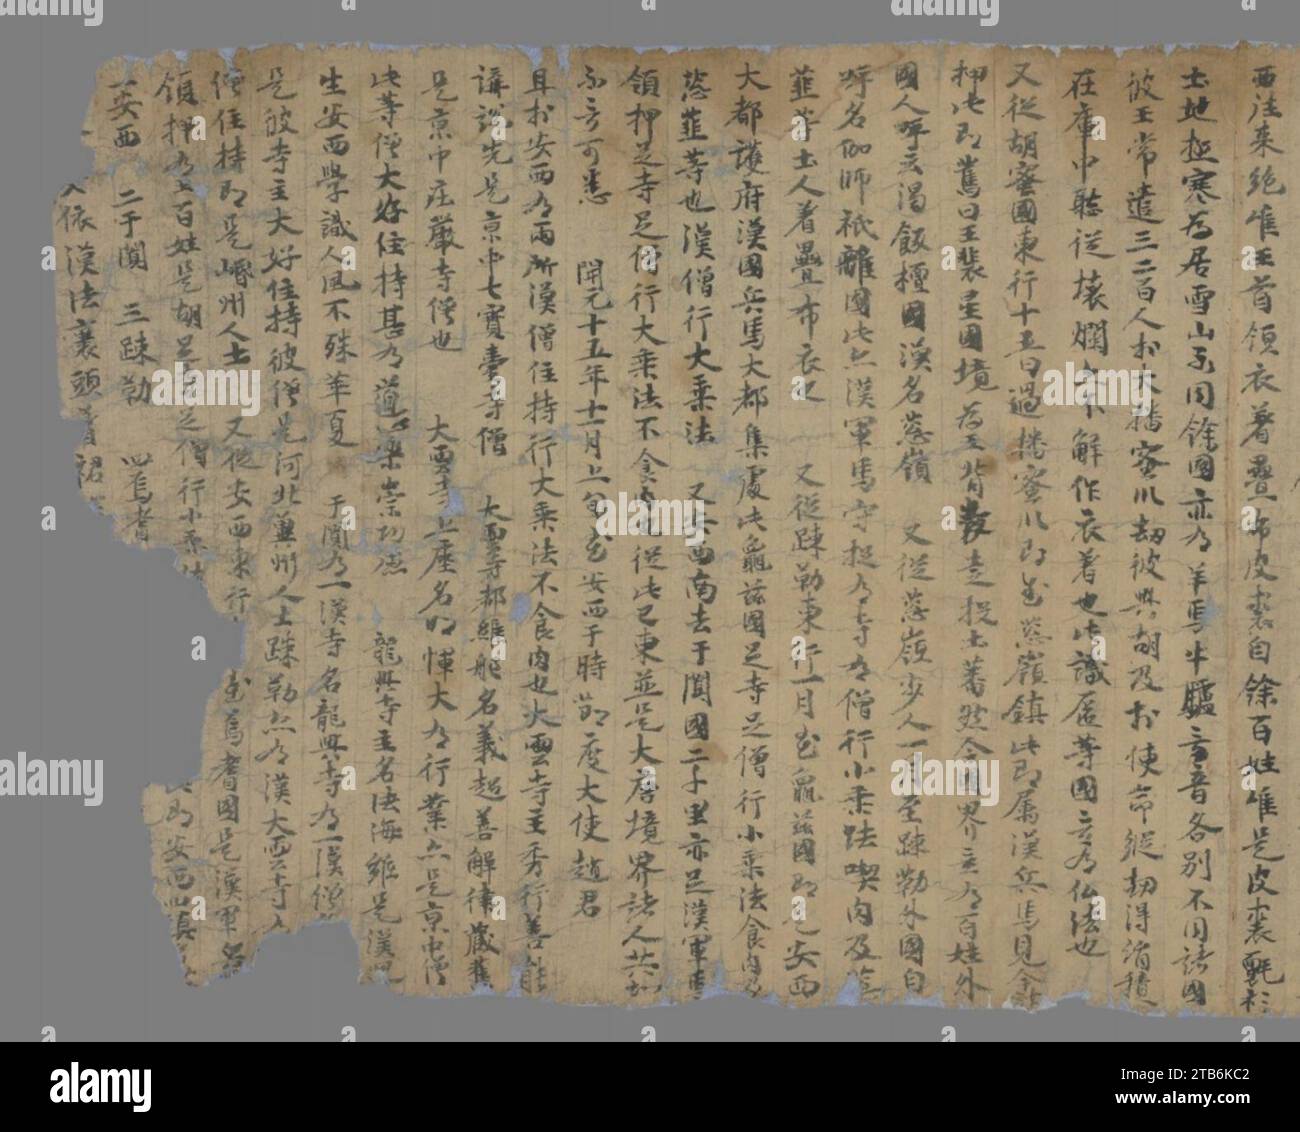 西往來絶唯王首領衣著疊布皮裘自餘百姓唯是皮裘氈衫
土地極寒為居雪山不同餘國亦有羊馬牛驢言音各別不同諸國
彼王常遣三二百人於大播蜜川劫彼興胡及於使命縱劫得絹積
在庫中聽從壞爛亦不解作衣著也此識匿等國无有仏法也
又從胡蜜國東行十五日過播蜜川即至葱嶺鎮此即属漢兵馬見今鎮
押此即舊日王裴星國境為王背叛走投土蕃然今國界无有百姓外
國人呼云渴飯檀國漢名葱嶺 又從葱嶺步入一月至疎勒外國自
呼名伽師祇離國此亦漢軍馬守捉有寺有僧行小乘法喫肉及葱
韮等土人着疊布衣也 又從疎勒東行一月至龜茲國即是安西
大都護府漢國兵馬大都集處此龜茲國足寺足僧行小乘法食肉及
葱韮等也漢僧行大乘法 又安西南去于闐國二千里亦足漢軍馬
領押足寺足僧行大乘法不食肉也從此已東並是大唐境界諸人共知
不言可悉 開元十五年十一月上旬至安西于時節度大使趙君
且於安西有兩所漢僧住持行大乘法不食肉也大雲寺主秀行善能
講說先是京中七寶臺寺僧 大雲寺都維那名義超善解律藏舊
是京中庄嚴寺僧也 大雲寺上座名明惲大有行業亦是京中僧
此等僧大好住持甚有道心樂崇功德 龍興寺主名法海雖是漢兒
生安西學識人風不殊華夏 于闐有一漢寺名龍興寺有一漢僧
是彼寺主大好住持彼僧是河北冀州人士疎勒亦有漢大雲寺有
僧住持即是岷州人士 又從安西東行 至焉耆國是漢軍
領押有王百姓是胡足寺足僧行小乘法 即安西四鎮
一安西 二于闐 三疎勒 四焉耆
依漢法裹頭著裙
alamy
Image ID: 2TB6KC2
www.alamy.com